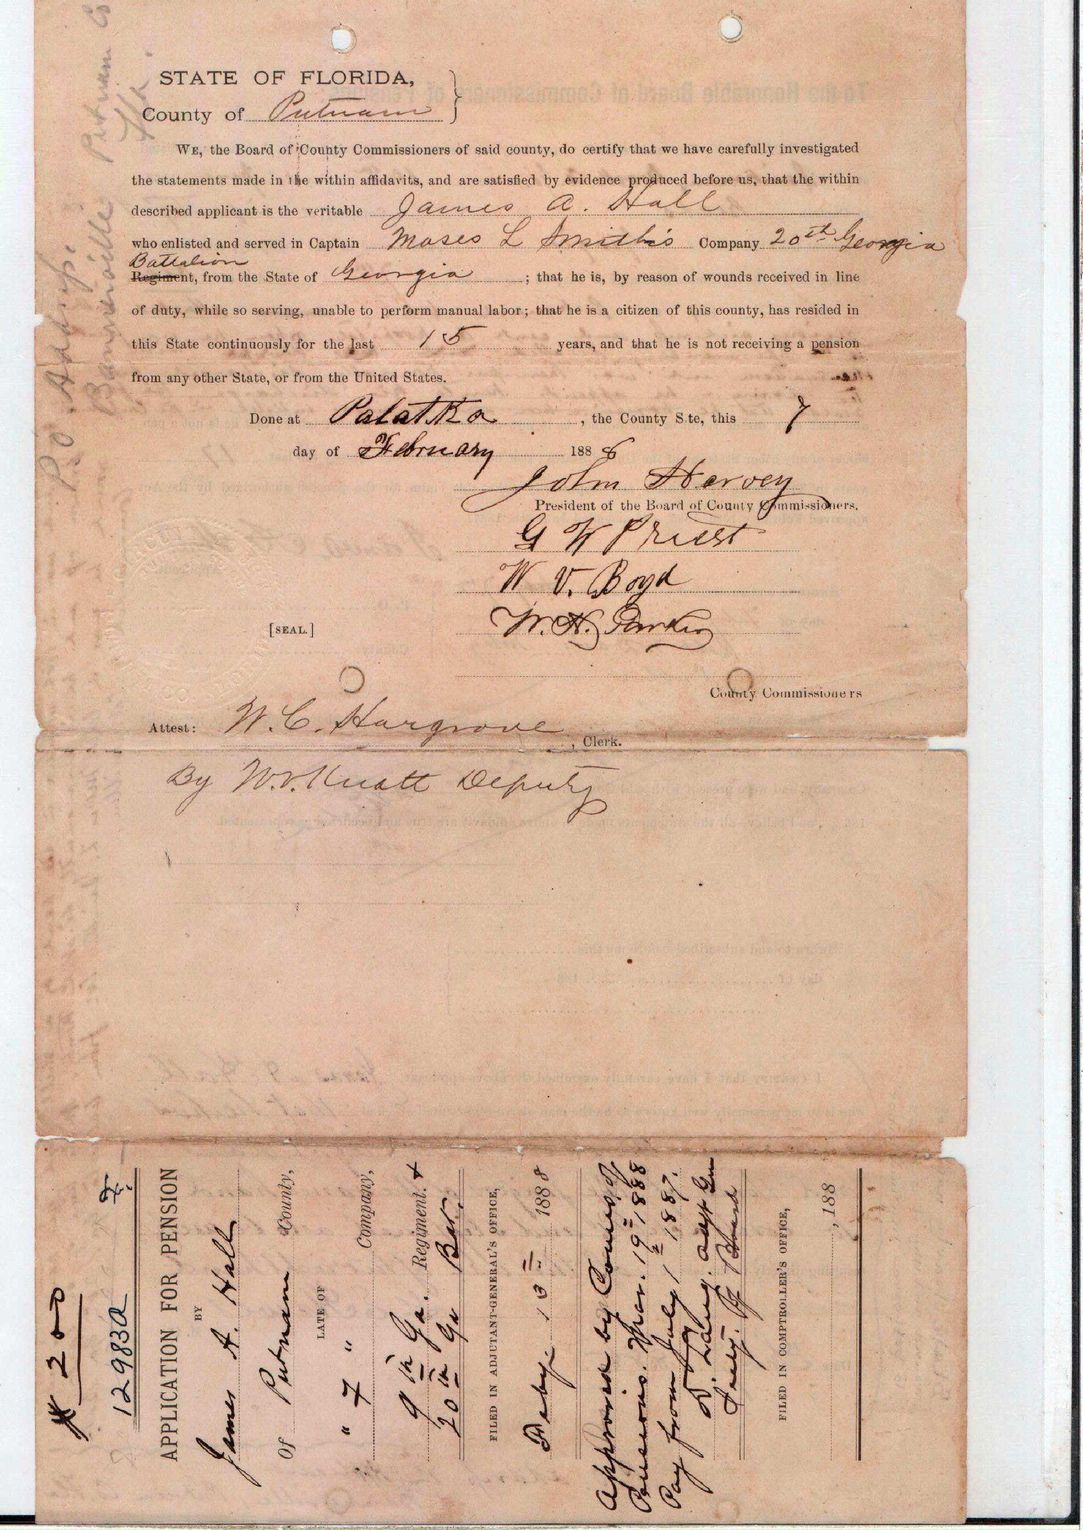 STATE OF FLORIDA,
County of Putnam
WE, the Board of County Commissioners of said county, do certify that we have carefully investigated
the statements made in the within affidavits, and are satisfied by evidence produced before us, that the within
described applicant is the veritable James A. Hall
who enlisted and served in Captain Moses L Smith's Company 20th Georgia
Battalion
Regiment, from the State of Georgia ; that he is, by reason of wounds received in line
of duty, while so serving, unable to perform manual labor; that he is a citizen of this county, has resided in
this State continuously for the last 15 years, and that he is not receiving a pension
from any other State, or from the United States.
Done at Palatka , the County Site, this 7
day of February 1888
John Harvey
President of the Board of County Commissioners.
G W Priest
W V. Boyd
W. H.
[SEAL.]
County Commissioners
Attest: W. C. Hargrove , Clerk.
By W. V. Deputy
P.O. Address:
Putnam Co
Fla.
# 200
12983A
APPLICATION FOR PENSION
BY
James A. Hall
Of Putnam County,
LATE OF
" 7 " Company,
9th Ga. Regiment. +
20th Ga Bat.
FILED IN ADJUTANT-GENERAL'S OFFICE,
Feby. 13th 1888
Approved by Comrs. of
Pensions. Mar. 19th 1888
Pay from July 1st 1887.
D. Lang. adjt Gen
Secty. of Board
FILED IN COMPTROLLER'S OFFICE,
, 188